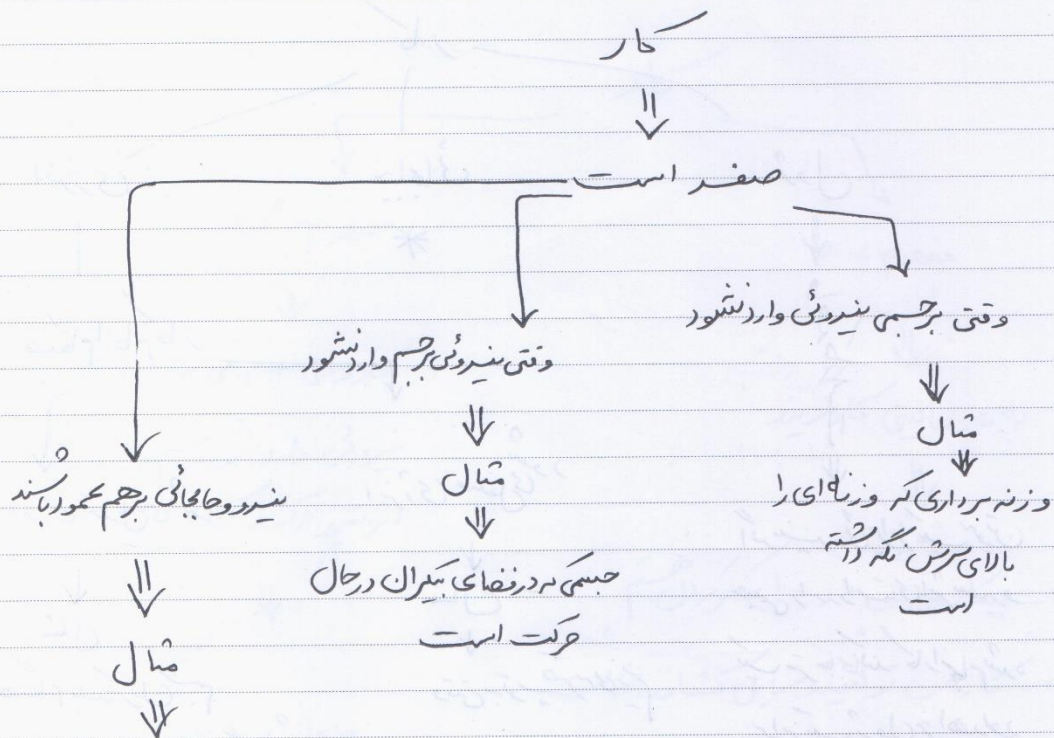 کار
صفر است
وقتی بر جسمی نیروئی وارد نشود
مثال
وزنه برداری که وزنه ای را
بالای سرش نگه داشته
است
وقتی نیروئی بر جسم وارد نشود
مثال
جسمی که در فضای بیکران در حال
حرکت است
نیرو و جابجائی بر هم عمود باشند
مثال